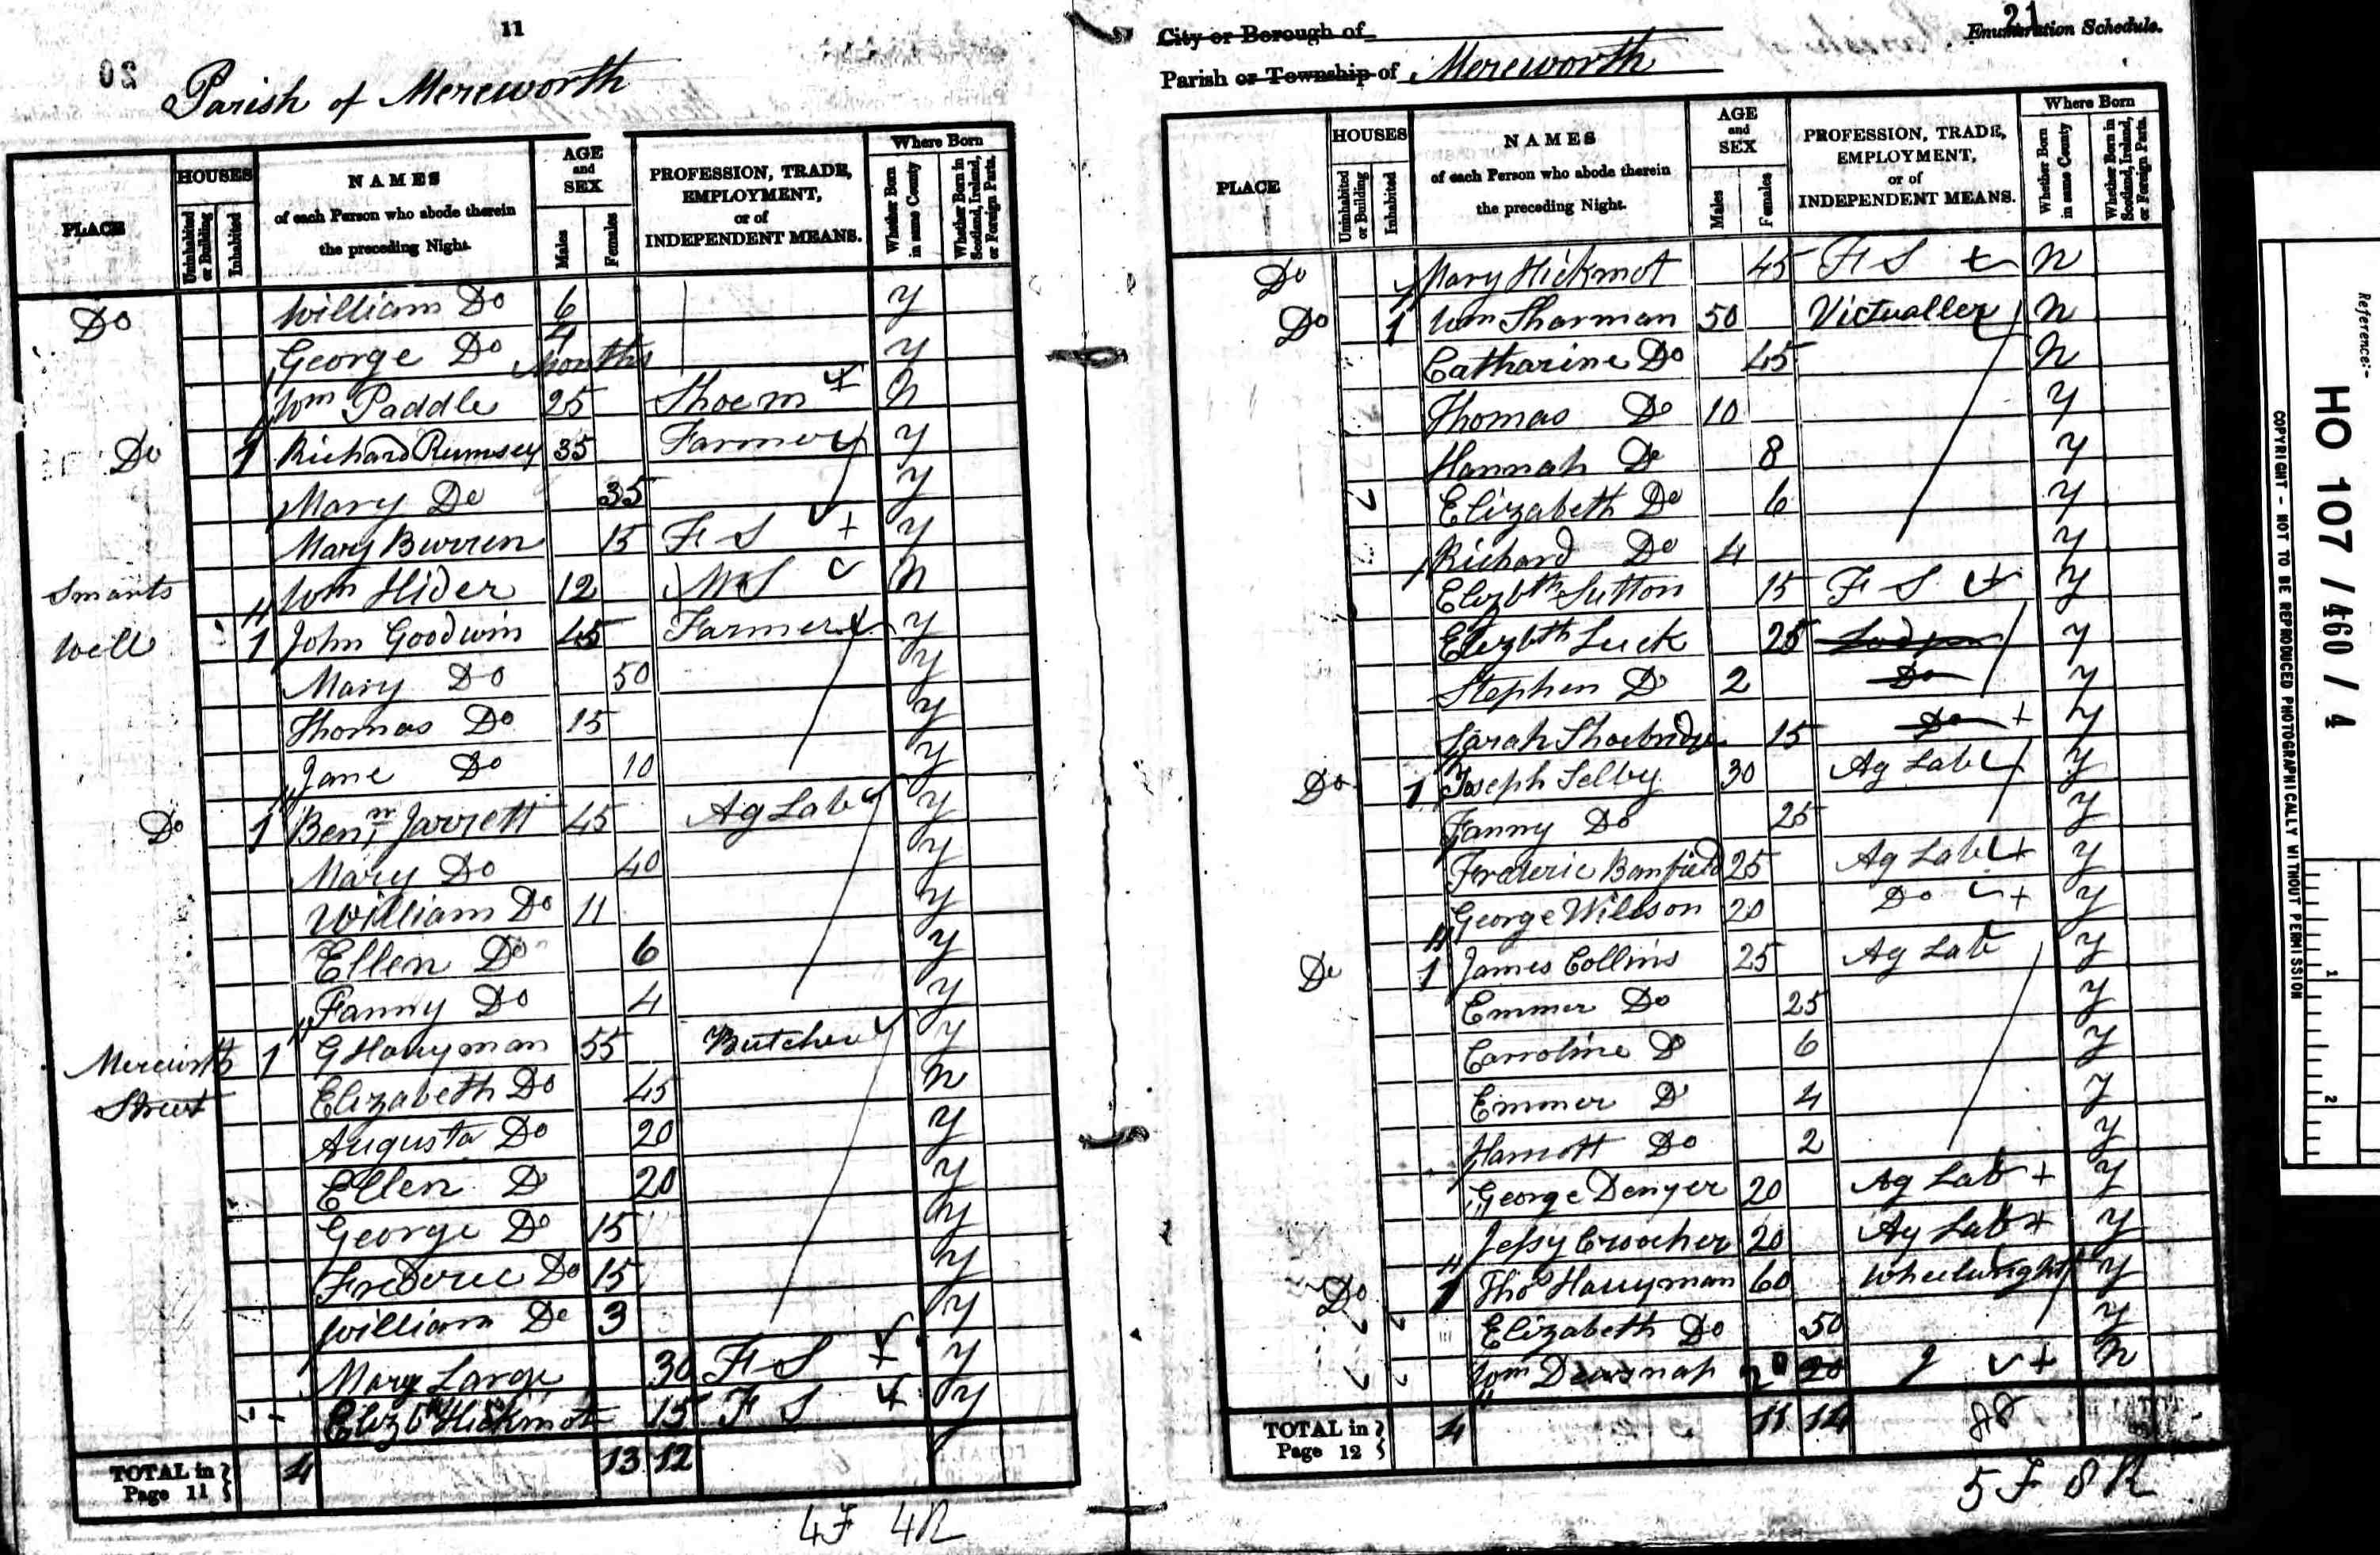 11
20
Parish of Mereworth
PLACE
HOUSES
Uninhabited or Building
Inhabited
NAMES
of each Person who abode therein
the preceding Night.
AGE
and
SEX
Males
Females
PROFESSION, TRADE,
EMPLOYMENT,
or of
INDEPENDENT MEANS.
Where Born
Whether Born in same County
Whether Born in Scotland, Ireland, or Foreign Parts.
Do William Do 6 y
George Do 4 Months y
Wm Paddle 25 Shoe m N
Do 1 Richard Rumsey 35 Farmer y
Mary Do 35 y
Mary Burren 15 F S + y
Smarts Wm Hider 12 M S N
Well 1 John Goodwin 45 Farmer y
Mary Do 50 y
Thomas Do 15 y
Jane Do 10 y
Do 1 Benjn Jarrett 45 Ag Lab y
Mary Do 40 y
William Do 11 y
Ellen Do 6 y
Fanny Do 4 y
Merewirth 1 G Harryman 55 Butcher y
Street Elizabeth Do 45 N
Augusta Do 20 y
Ellen D 20 y
George Do 15 y
Frederic Do 15 y
William Do 3 y
Mary Large 30 F S + y
Elizbth Hickmot 15 F S + y
TOTAL in Page 11 4 13 12
4F 4R
City or Borough of
21
Enumeration Schedule.
Parish or Township of Mereworth
PLACE
HOUSES
Uninhabited or Building
Inhabited
NAMES
of each Person who abode therein
the preceding Night.
AGE
and
SEX
Males
Females
PROFESSION, TRADE,
EMPLOYMENT,
or of
INDEPENDENT MEANS.
Where Born
Whether Born in same County
Whether Born in Scotland, Ireland, or Foreign Parts.
Do Mary Hickmot 45 F S + N
Do 1 Wm Sharman 50 Victualler N
Catharine Do 45 N
Thomas Do 10 y
Hannah Do 8 y
Elizabeth Do 6 y
Richard Do 4 y
Elizbth Sutton 15 F S + y
Elizbth Luck 25 y
Stephen D 2 Do y
Sarah Shoebridge 15 Do + y
Do 1 Joseph Selby 30 Ag Lab y
Fanny Do 25 y
Frederic Banfield 25 Ag Lab + y
George Willson 20 Do + y
Do 1 James Collins 25 Ag Lab y
Emmer Do 25 y
Carroline D 6 y
Emmer D 4 y
Harriott Do 2 y
George Denyer 20 Ag Lab + y
Jessy Croocher 20 Ag Lab + y
Do 1 Thos Harryman 60 Wheelwright y
Elizabeth Do 50 y
Wm 20 20 J + N
TOTAL in Page 12 4 11 14
5 F 8 R
Reference:-
HO 107 / 460 / 4
COPYRIGHT - NOT TO BE REPRODUCED PHOTOGRAPHICALLY WITHOUT PERMISSION
1
2